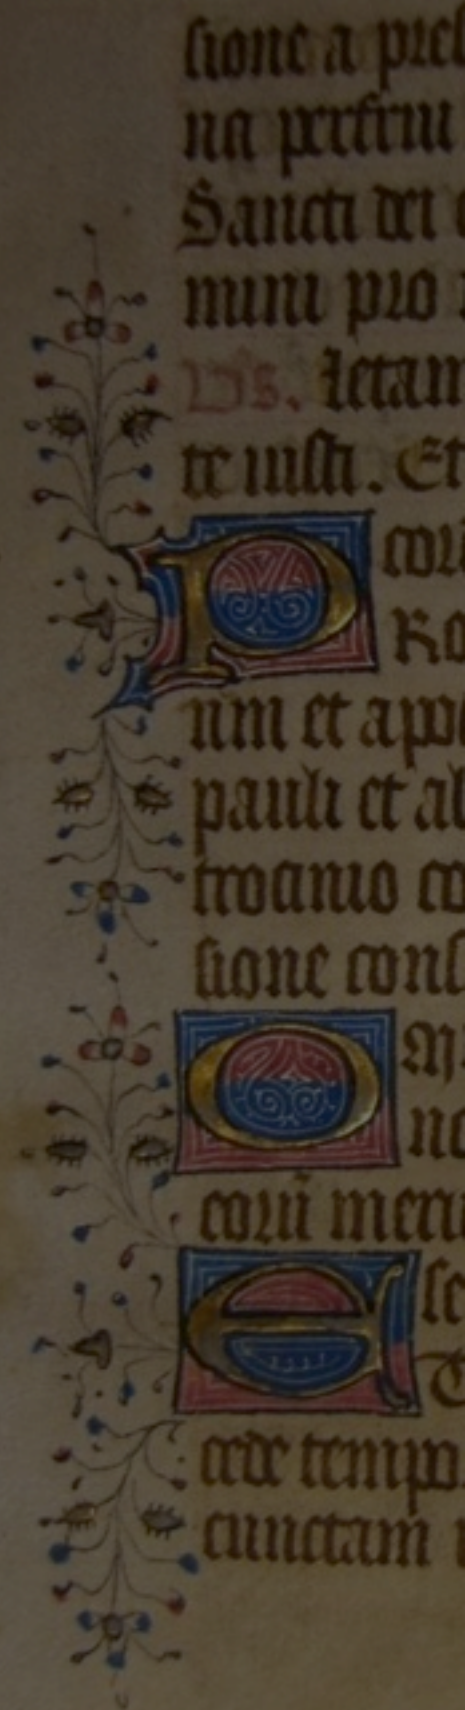 sione a pres
na perfrui
Sancti dei o
mini pro n
Vs. letam
te iusti. Et
P corū
Ro
um et apo
pauli et al
trocinio co
sione cons
O M
no
corū meri
E se
T
cede tempo
cunctam